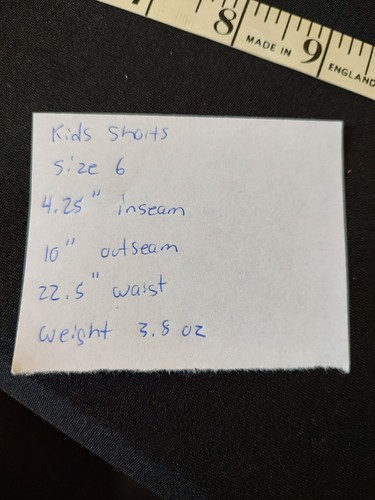 7 8 9
MADE IN ENGLAND
Kids Shorts
Size 6
4.25" inseam
10" outseam
22.5" waist
weight 3.8 oz